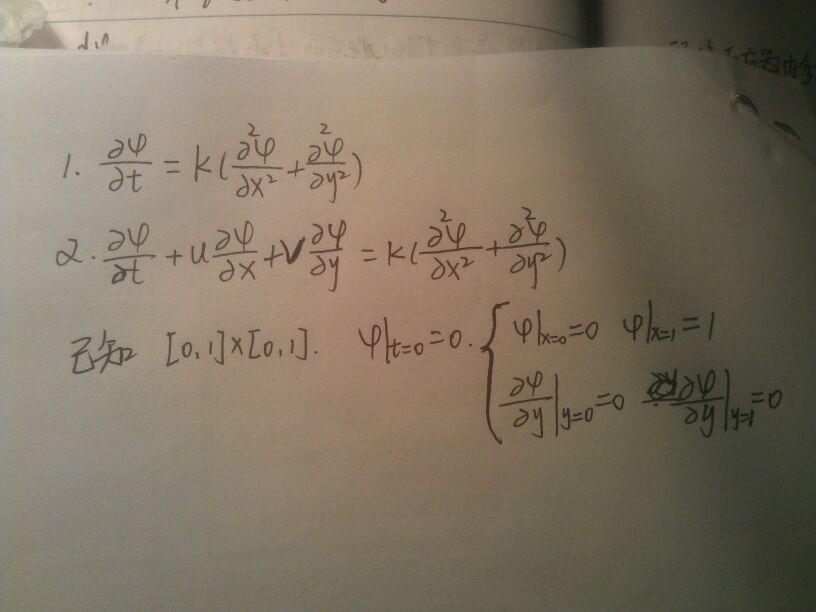 1. ∂φ/∂t = K(∂²φ/∂x² + ∂²φ/∂y²)
2. ∂φ/∂t + u ∂φ/∂x + V ∂φ/∂y = K(∂²φ/∂x² + ∂²φ/∂y²)
已知 [0,1]×[0,1]. φ|t=0=0. { φ|x=0=0 φ|x=1=1
∂φ/∂y|y=0=0 ∂φ/∂y|y=1=0